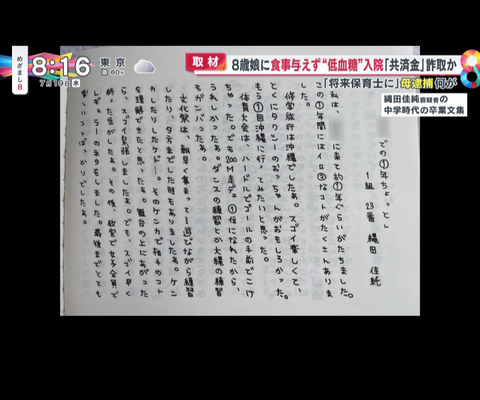 めざまし8
8:16
7月19日水
東京
60%
取材
8歳娘に食事与えず“低血糖”入院「共済金」詐取か
「将来保育士に」母逮捕何が
縄田佳純容疑者の
中学時代の卒業文集
での①年ちょっとし
1組 23番 縄田 佳純
私は、
に来て約①年ぐらいがたちました。
この①年間にはイロ③なコトがたくさんありま
した。
修学旅行は沖縄でしたぁ。スゴイ楽しくて、
とくにタクシーのおっちゃんがおもしろかった。
もう①回沖縄に行ってみたいと思った。
体育大会は、ハードルでゴールの手前でこけ
ちゃった。でも200M走デ①位になれたから、
うれしかったぁ。ダンスの練習とか大縄の練習
もガンバったなぁ。
文化祭は、朝早く集まって遊びながら練習
したり、夕方までした時もありましたぁ。ケン
カしたりしたケド…。そのケンカで相手のコト
を理解できたと思った。舞台の上にあがった
ら、スゴイ緊張しましたぁ。でも、スゴイ早く
終った気がしたぁ。その後、教室で女子全員で
レギュラーのネタをしました。最後までとても
楽しいコトばかりでしたぁ。